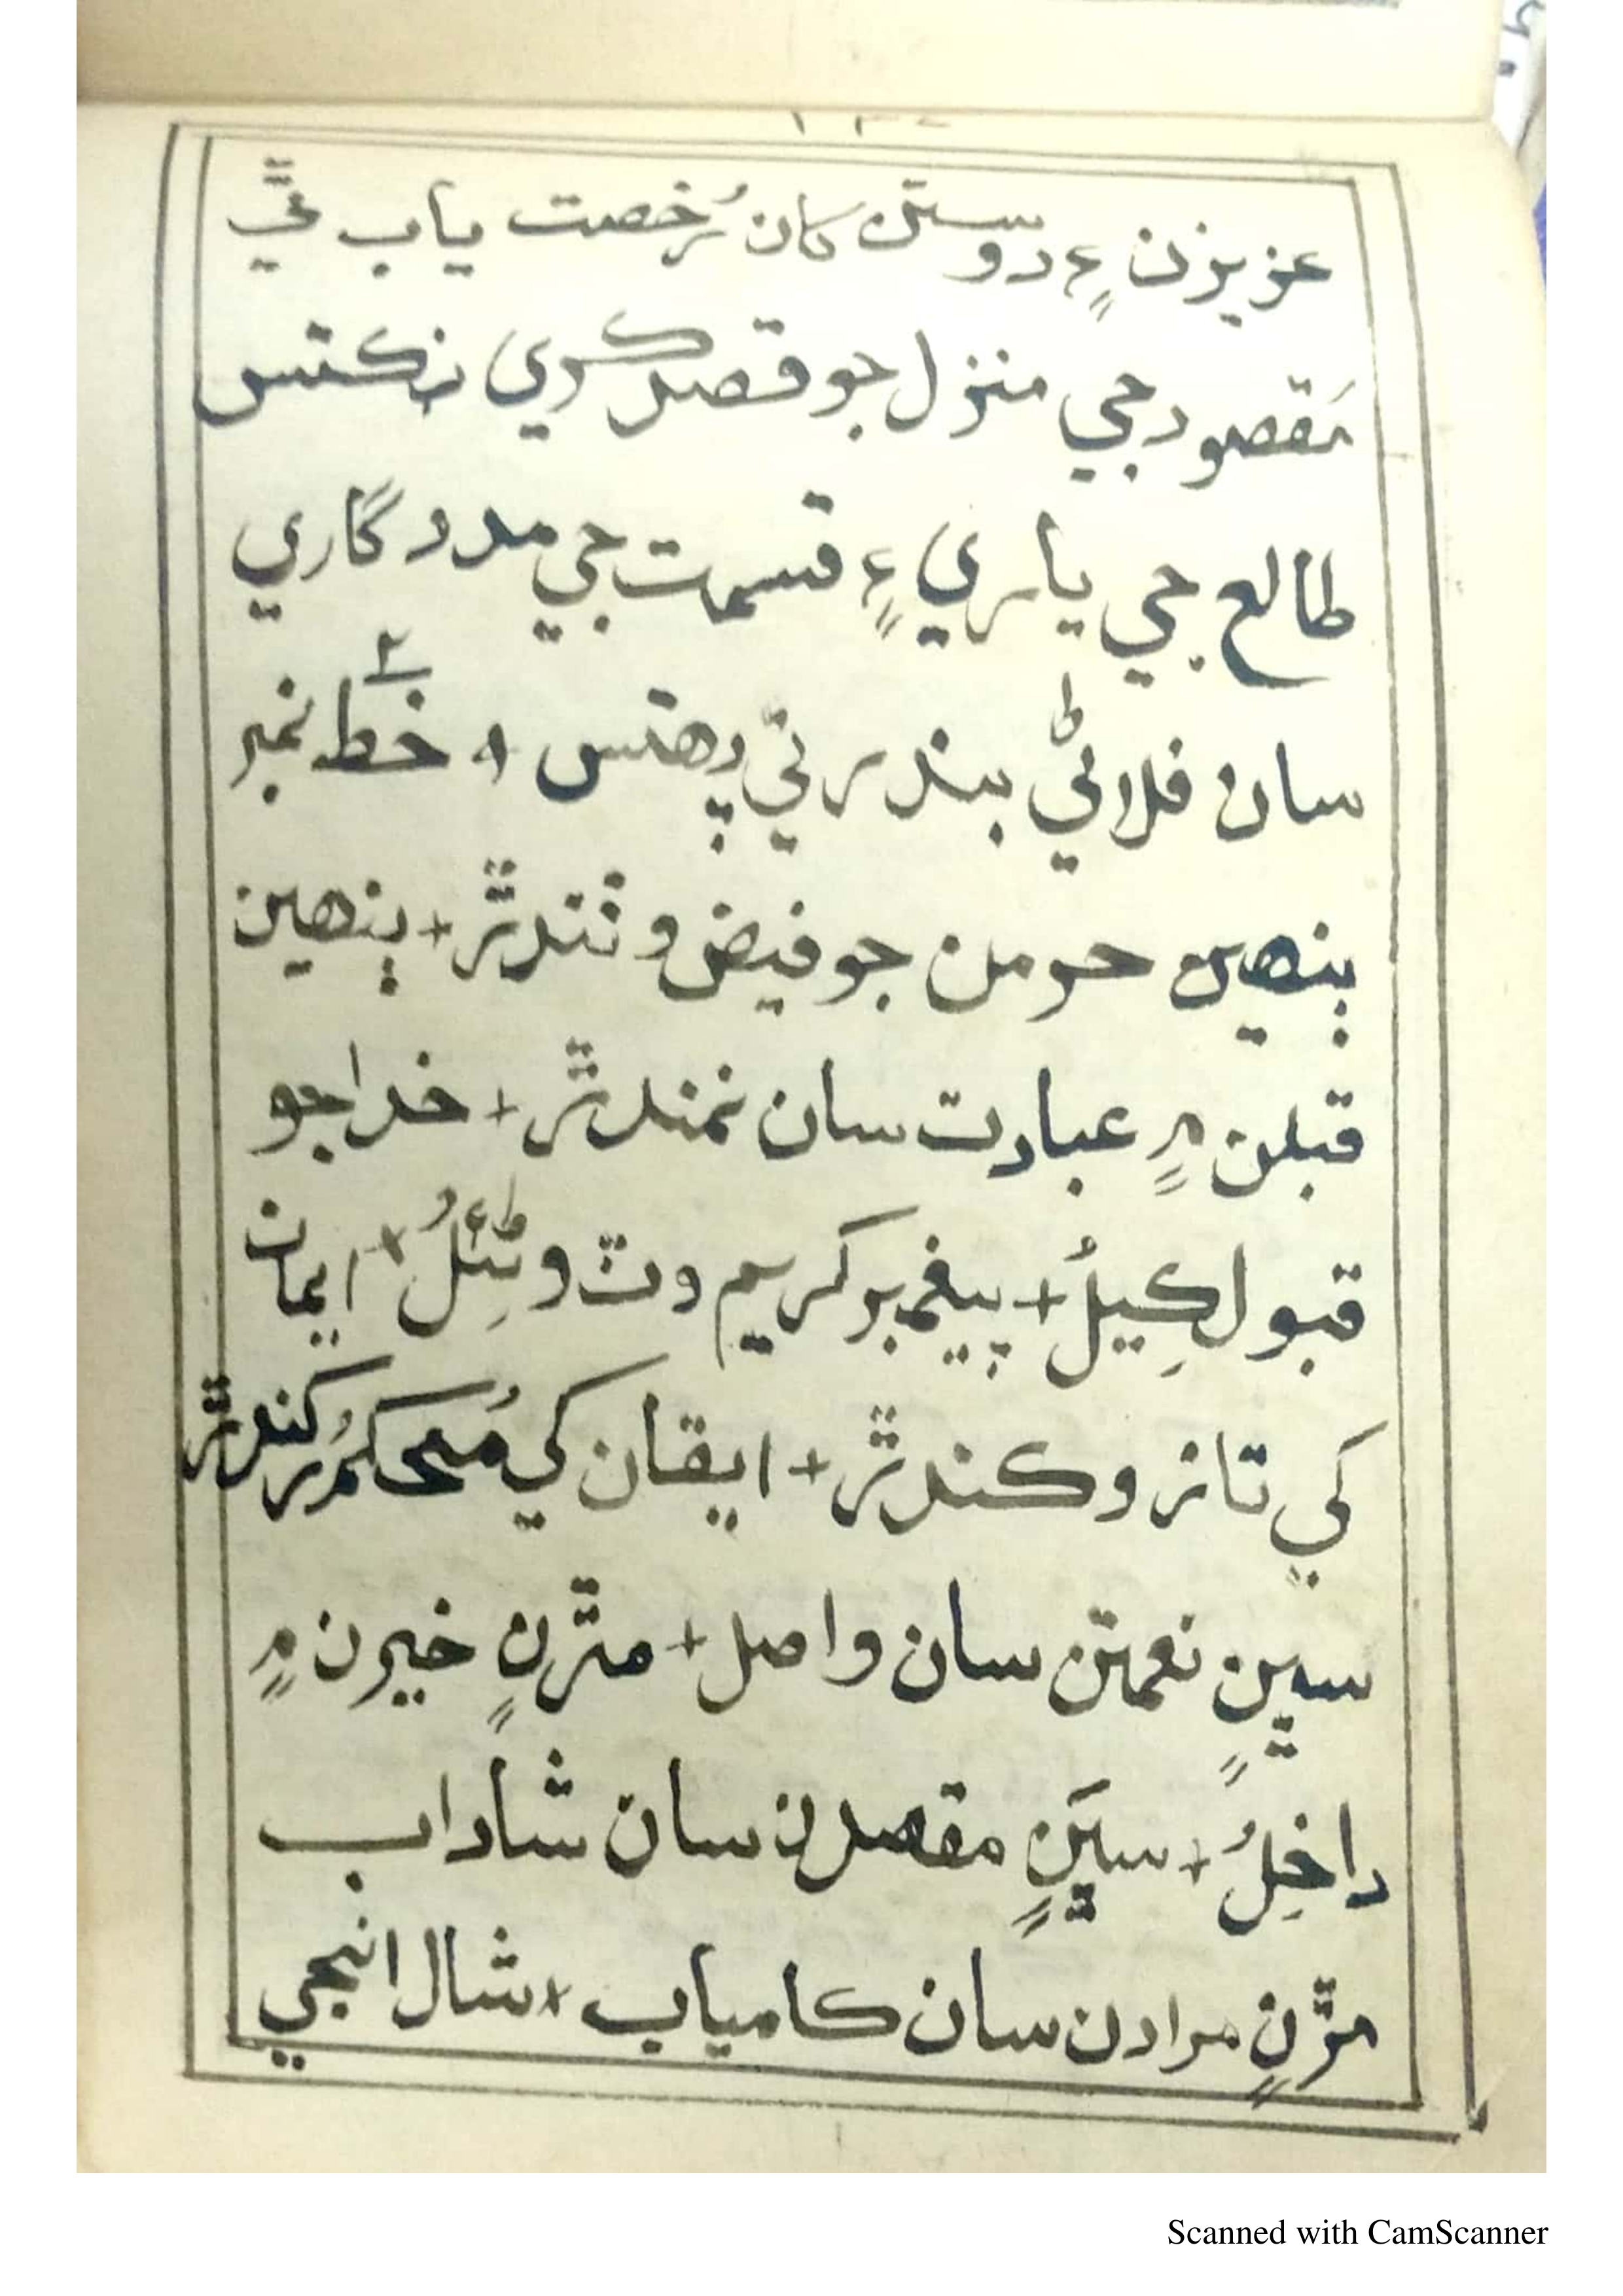 عزيزن ۽ دوستن کان رُخصت ياب ٿي
مَقصود جي منزل جو قصد ڪري نڪتس
طالع جي ياري ۽ قسمت جي مددگاري
سان فلاڻي بندر تي پهتس + خط نمبر ٢
ٻنهين حرمن جو فيض وٺندڙ + ٻنهين
قبلن ۾ عبادت سان نمندڙ + خدا جو
قبول ڪِيلُ + پيغمبر ڪريم وٽ وڻِئلُ + ايمان
کي تازو ڪندڙ + ايقان کي مُحڪم ڪندڙ
سڀنِ نعمتن سان واصل + مڙنِ خيرن ۾
داخِلُ + سڀَنِ مقصدن سان شاداب
مڙنِ مرادن سان ڪامياب + شال انجي
Scanned with CamScanner